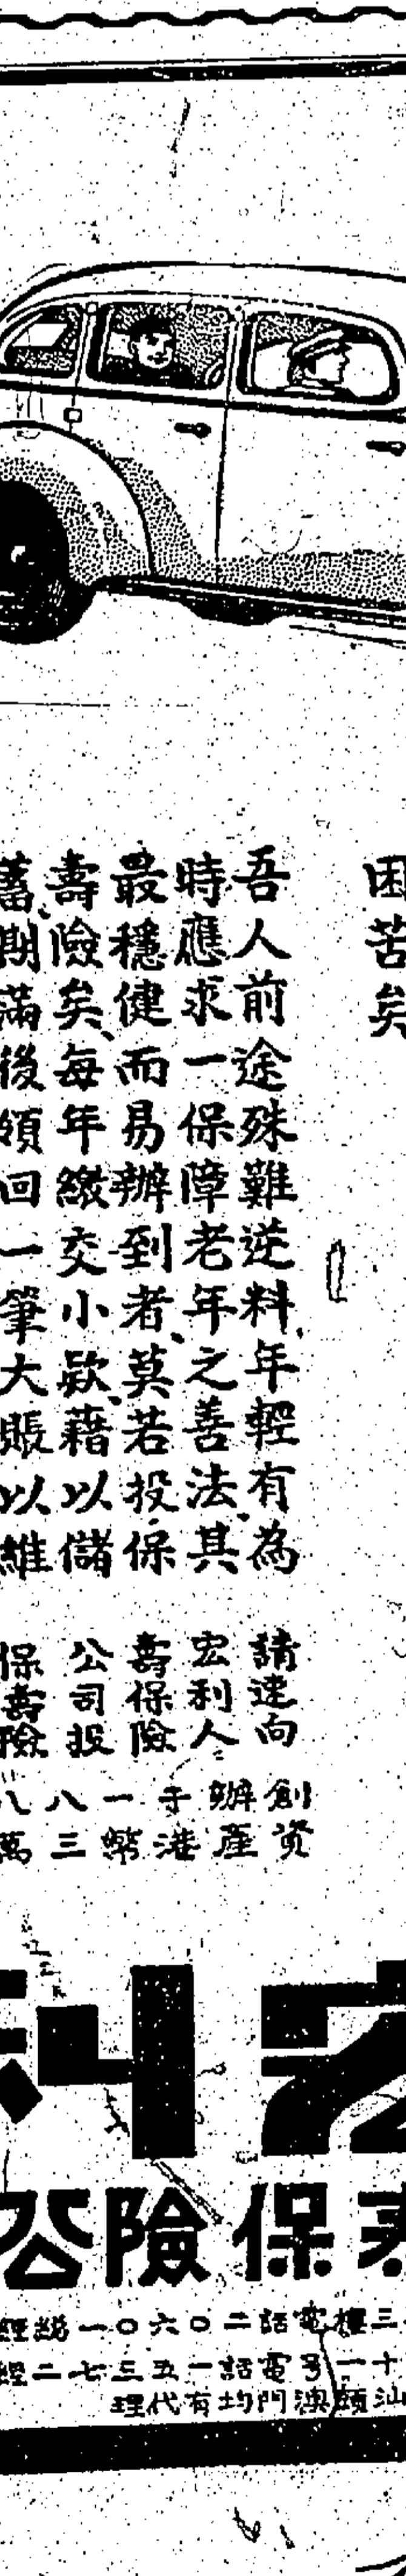 困苦矣
吾人前途殊難逆料、年輕有為
時應求一保障老年之善法、其
最穩健而易辦到者、莫若投保
壽險矣、每年繳交小欵、藉以儲
蓄、期滿後領回一筆大賬以維
請速向
宏利人
壽保險
公司投
保壽險
創辦于一八八
資產港幣三萬
宏利
壽保險公
三樓電話二〇六〇一總經
十一号電話一五三七二經
汕頭澳門均有代理